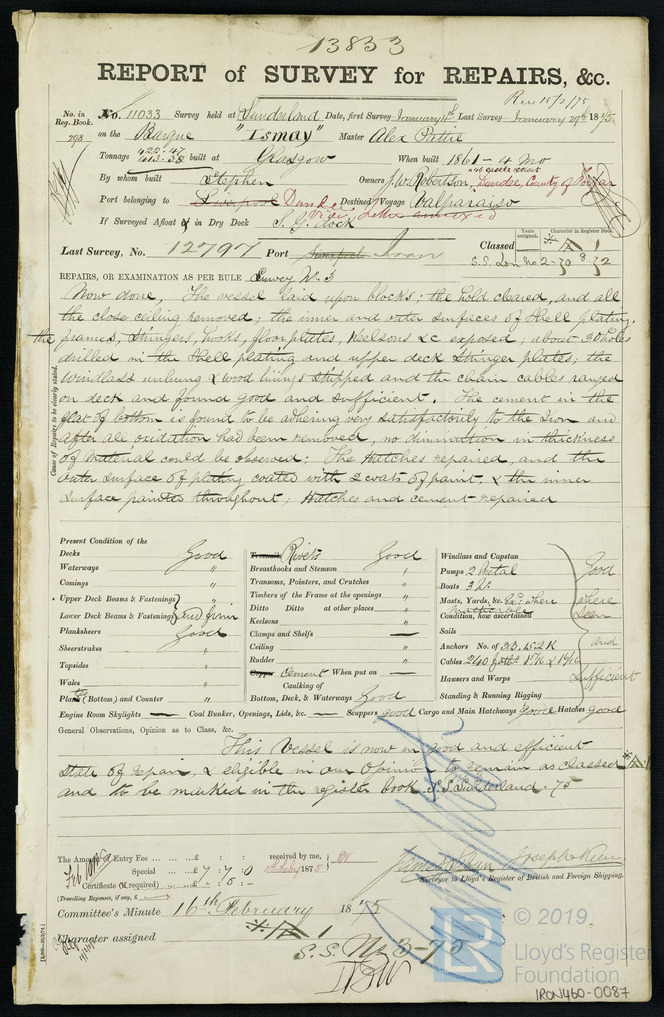 13853
REPORT of SURVEY for REPAIRS, &c.
Rec 15/2/75
No. in Reg. Book. No. 11033 Survey held at Sunderland Date, first Survey January 4th Last Survey January 29th 1875
298 on the Barque "Ismay" Master Alex Pattie
Tonnage 422.47 413.38 built at Glasgow When built 1861 - 4 mo
By whom built Stephen Owners J. W. Robertson, Dundee, County of Forfar
Port belonging to Liverpool Dundee Destined Voyage Valparaiso
Vide Letter annexed
If Surveyed Afloat or in Dry Dock S. G. dock
Last Survey, No. 12797 Port Liverpool Iron Classed
Years assigned. Character in Register Book.
S.S. Lon No 2-70 8.72
REPAIRS, OR EXAMINATION AS PER RULE Survey No. 3
Cause of Repairs to be clearly stated.
Now done, The vessel laid upon blocks; the hold cleared, and all
the close ceiling removed; the inner and outer surfaces of Shell plating,
the frames, Stringers, hooks, floorplates, Keelsons &c exposed; about 30 holes
drilled in the Shell plating and upper deck Stringer plates; the
windlass unhung & wood linings stripped and the chain cables ranged
on deck and found good and sufficient. The cement in the
flat of bottom is found to be adhering very satisfactorily to the Iron and
after all oxidation had been removed, no diminution in thickness
of material could be observed; The Hatches repaired, and the
outer surface of plating coated with 2 coats of paint, & the inner
surface painted throughout; Hatches and cement repaired
Present Condition of the
Decks Good
Waterways "
Comings "
Upper Deck Beams & Fastenings
Lower Deck Beams & Fastenings Good firm
Planksheers Good
Sheerstrakes "
Topsides "
Wales "
Plates (Bottom) and Counter "
Treenails Rivets Good
Breasthooks and Stemson "
Transoms, Pointers, and Crutches "
Timbers of the Frame at the openings "
Ditto Ditto at other places "
Keelsons "
Clamps and Shelfs —
Ceiling "
Rudder "
Copper Cement When put on —
Caulking of Bottom, Deck, & Waterways Good
Windlass and Capstan
Pumps 2 Metal
Boats 3
Masts, Yards, &c. where
Condition, how ascertained
Sails
Anchors No. of 3B. 1S. 2K
Cables 240 faths 1 5/16 & 1 9/16
Hawsers and Warps
Standing & Running Rigging
Good where seen and sufficient
Engine Room Skylights — Coal Bunker, Openings, Lids, &c. — Scuppers good Cargo and Main Hatchways Good Hatches Good
General Observations, Opinion as to Class, &c.
This Vessel is now in good and efficient
state of repair, & eligible in our Opinion to remain as classed
and to be marked in the register book S.S. Sunderland. 75
The Amount of Entry Fee £ : : received by me,
Special £ 7 : 7 : 0 1875
Certificate (if required) - : 5 : -
(Travelling Expenses, if any, £ )
Joseph Keen
Surveyor to Lloyd's Register of British and Foreign Shipping.
Committee's Minute 16th February 1875
Character assigned
S.S. No 3-75
© 2019.
LR
Lloyd's Register
Foundation
IRON460-0087